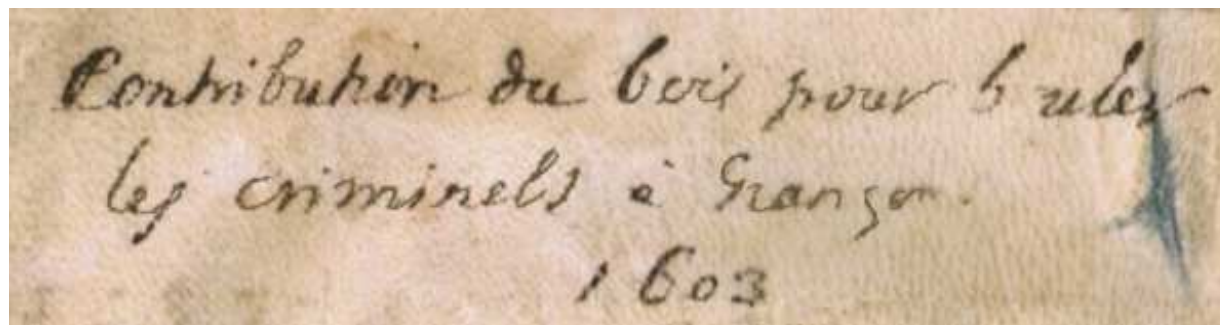 Contribution du bois pour bruler
les criminels à Granson.
1603